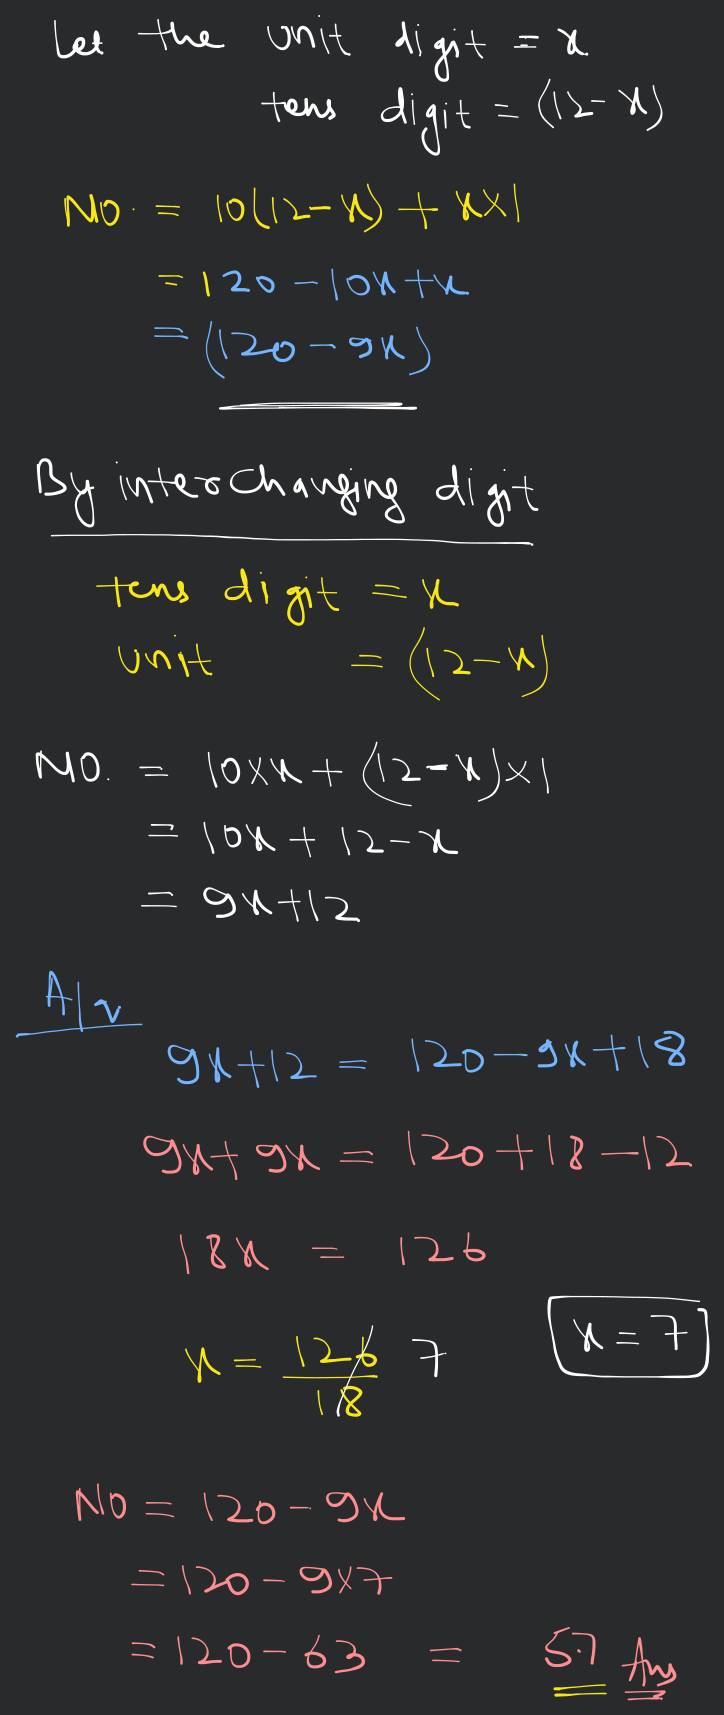 Let the unit digit = x
tens digit = (12-x)
NO. = 10(12-x) + x×1
= 120 - 10x + x
= (120 - 9x)
By interchanging digit
tens digit = x
unit = (12-x)
NO. = 10×x + (12-x)×1
= 10x + 12 - x
= 9x + 12
A/q
9x + 12 = 120 - 9x + 18
9x + 9x = 120 + 18 - 12
18x = 126
x = 126/18 7 x = 7
NO = 120 - 9x
= 120 - 9×7
= 120 - 63 = 57 Ans